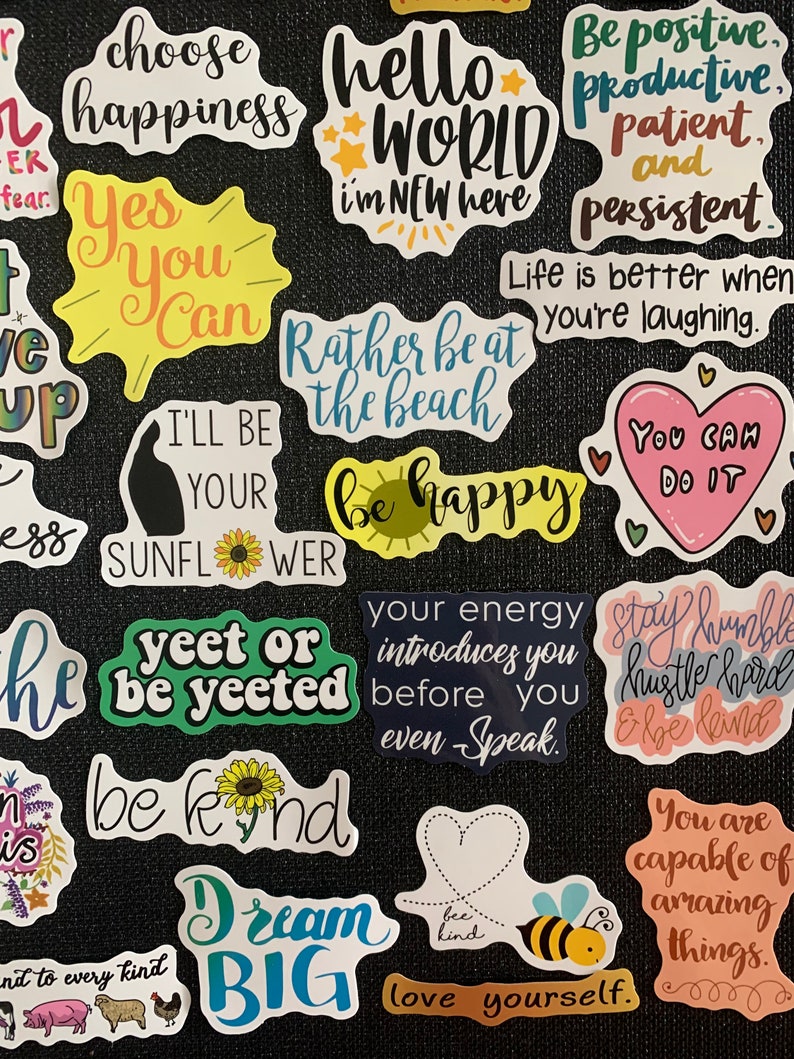 choose
happiness
hello
WORLD
i'm NEW here
Be positive,
productive,
patient,
and
persistent.
ER
fear.
Yes
You
Can
Life is better when
you're laughing.
Rather be at
the beach
up
YOU CAN
DO IT
I'LL BE
YOUR
SUNFLOWER
be happy
ess
yeet or
be yeeted
your energy
introduces you
before you
even Speak.
stay humble
hustle hard
& be kind
the
be kind
is
You are
capable of
amazing
things.
bee
kind
Dream
BIG
to every kind
love yourself.